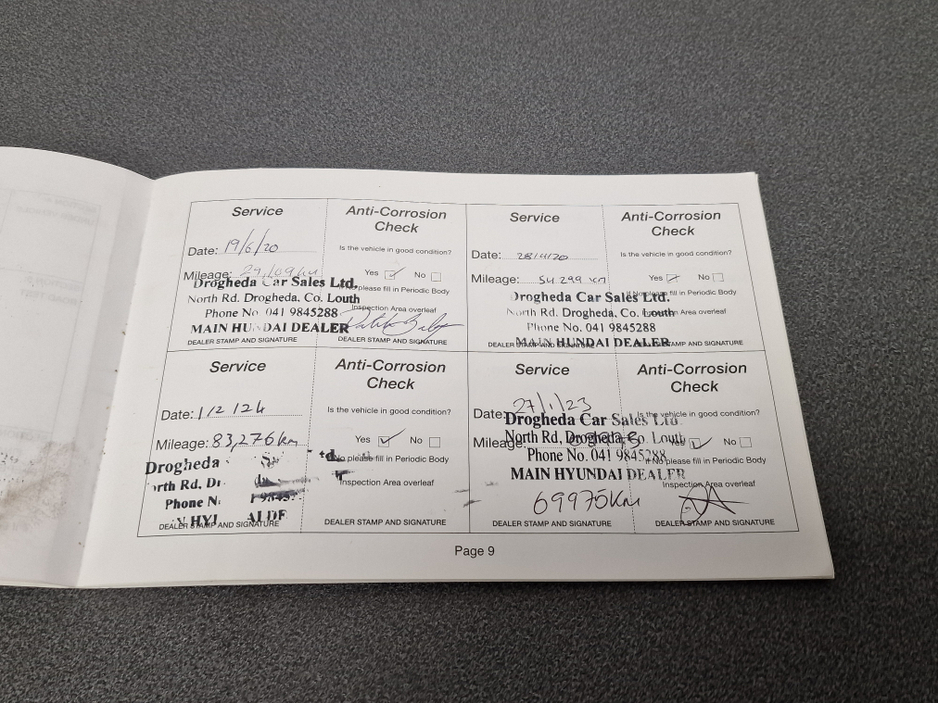 Service
Anti-Corrosion
Check
Date: 19/6/20
Is the vehicle in good condition?
Mileage:
Yes ✓ No
Drogheda Car Sales Ltd.
please fill in Periodic Body
North Rd. Drogheda, Co. Louth
Inspection Area overleaf
Phone No. 041 9845288
MAIN HUNDAI DEALER
DEALER STAMP AND SIGNATURE
DEALER STAMP AND SIGNATURE
Service
Anti-Corrosion
Check
Date:
Is the vehicle in good condition?
Mileage: 54 299 km
Yes ✓ No
Drogheda Car Sales Ltd.
please fill in Periodic Body
North Rd. Drogheda, Co. Louth
Inspection Area overleaf
Phone No. 041 9845288
MAIN HUNDAI DEALER
DEALER STAMP AND SIGNATURE
Service
Anti-Corrosion
Check
Date: 1/2/24
Is the vehicle in good condition?
Mileage: 83,276km
Yes ✓ No
Drogheda
No please fill in Periodic Body
Rd,
Inspection Area overleaf
Phone
DEALER STAMP AND SIGNATURE
DEALER STAMP AND SIGNATURE
Service
Anti-Corrosion
Check
Date: 27/1/23
Is the vehicle in good condition?
Drogheda Car Sales Ltd.
Mileage:
Yes ✓ No
North Rd, Drogheda, Co. Louth
No please fill in Periodic Body
Phone No. 041 9845288
MAIN HYUNDAI DEALER
Inspection Area overleaf
69975km
DEALER STAMP AND SIGNATURE
DEALER STAMP AND SIGNATURE
Page 9